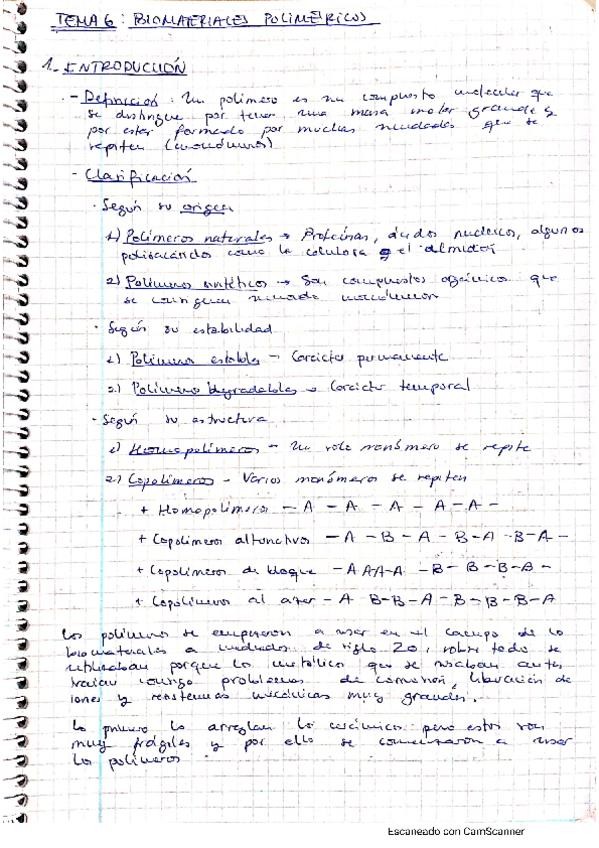 TEMA 6: BIOMATERIALES POLIMÉRICOS
1- INTRODUCCIÓN
- Definición: Un polímero es un compuesto molecular que
se distingue por tener una masa molar grande y
por estar formado por muchas unidades que se
repiten (monómeros)
- Clasificación
· Según su origen
1) Polímeros naturales → Proteínas, ácidos nucleicos, algunos
polisacáridos como la celulosa y el almidón
2) Polímeros sintéticos → Son compuestos orgánicos que
se consiguen uniendo monómeros
· Según su estabilidad
1) Polímeros estables - Carácter permanente
2) Polímeros degradables → Carácter temporal
· Según su estructura
1) Homopolímeros - Un solo monómero se repite
2) Copolímeros - Varios monómeros se repiten
+ Homopolímeros - A - A - A - A - A -
+ Copolímeros alternativos - A - B - A - B - A - B - A -
+ Copolímeros de bloque - A A A - A - B - B - B - B -
+ Copolímeros al azar - A B - B - A - B - B - B - A
Los polímeros se empezaron a usar en el campo de los
biomateriales a mediados de siglo 20, sobre todo se
utilizaban porque los metálicos que se usaban antes
traían consigo problemas de corrosión, liberación de
iones y resistencias mecánicas muy grandes.
Lo primero lo arreglan los cerámicos pero estos son
muy frágiles y por ello se comenzaron a usar
los polímeros
Escaneado con CamScanner